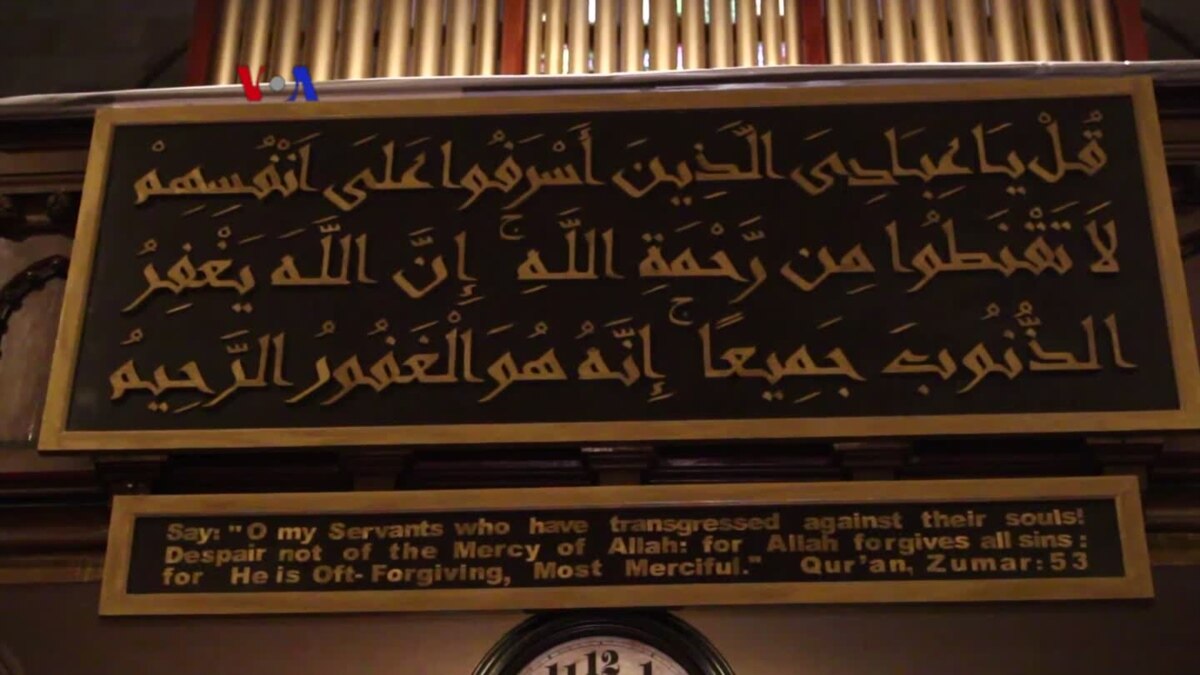 VOA
قُلْ يَا عِبَادِىَ الَّذِينَ أَسْرَفُوا عَلَى أَنْفُسِهِمْ
لَا تَقْنَطُوا مِن رَّحْمَةِ اللَّهِ ۚ إِنَّ اللَّهَ يَغْفِرُ
الذُّنُوبَ جَمِيعًا ۚ إِنَّهُ هُوَ الْغَفُورُ الرَّحِيمُ
Say: "O my Servants who have transgressed against their souls!
Despair not of the Mercy of Allah: for Allah forgives all sins:
for He is Oft-Forgiving, Most Merciful." Qur'an, Zumar:53
11 12 1